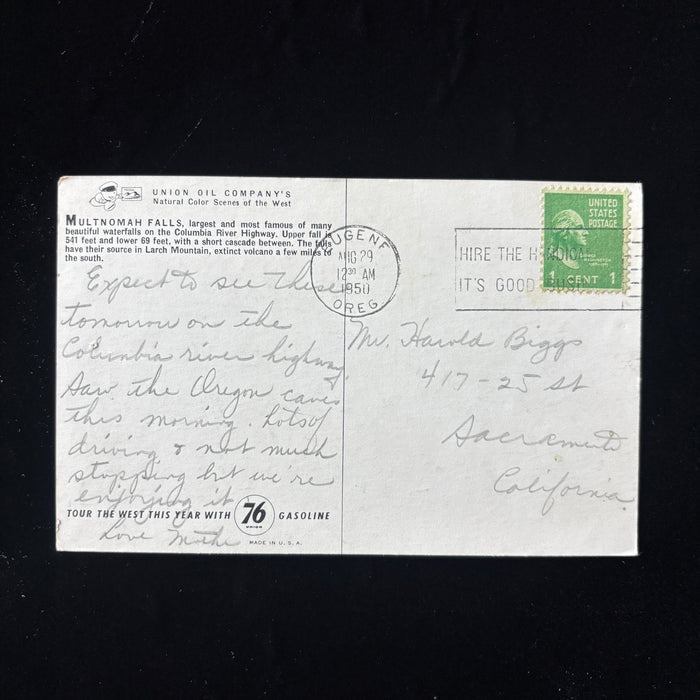 UNION OIL COMPANY'S
Natural Color Scenes of the West
MULTNOMAH FALLS, largest and most famous of many
beautiful waterfalls on the Columbia River Highway. Upper fall is
541 feet and lower 69 feet, with a short cascade between. The falls
have their source in Larch Mountain, extinct volcano a few miles to
the south.
Expect to see these
tomorrow on the
Columbia river highway.
Saw the Oregon caves
this morning. Lots of
driving & not much
stopping but we're
enjoying it
Love Mother
TOUR THE WEST THIS YEAR WITH 76 GASOLINE
UNION
MADE IN U.S.A.
EUGENE
AUG 29
12 30 AM
1950
OREG
HIRE THE
IT'S GOOD
UNITED
STATES
POSTAGE
1 CENT 1
Mr. Harold Biggs
417-25 St
Sacramento
California